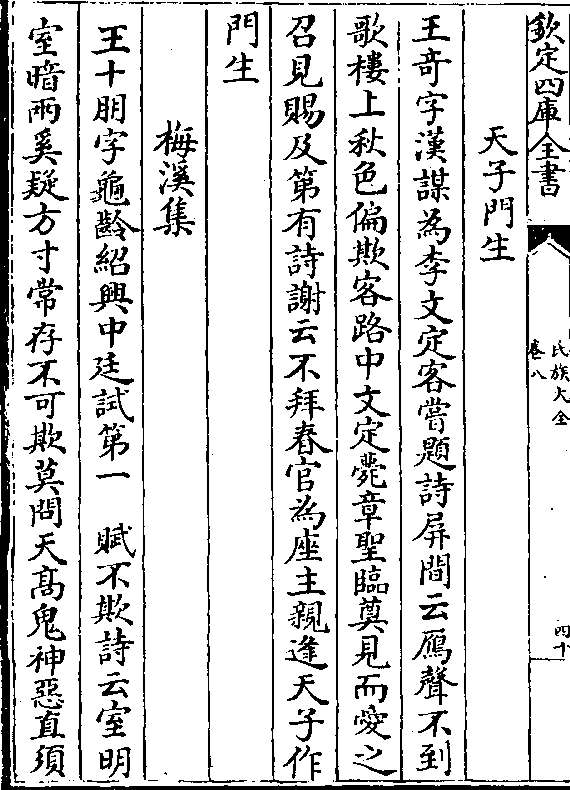 欽定四庫全書
氏族大全
卷八
四十
天子門生
王竒字漢謀為李文定客嘗題詩屏間云鴈聲不到
歌樓上秋色偏欺客路中文定薨章聖臨奠見而愛之
召見賜及第有詩謝云不拜春官為座主親逢天子作
門生
梅溪集
王十朋字龜齡紹興中廷試第一 賦不欺詩云室明
室暗兩奚疑方寸常存不可欺莫問天髙鬼神惡直須